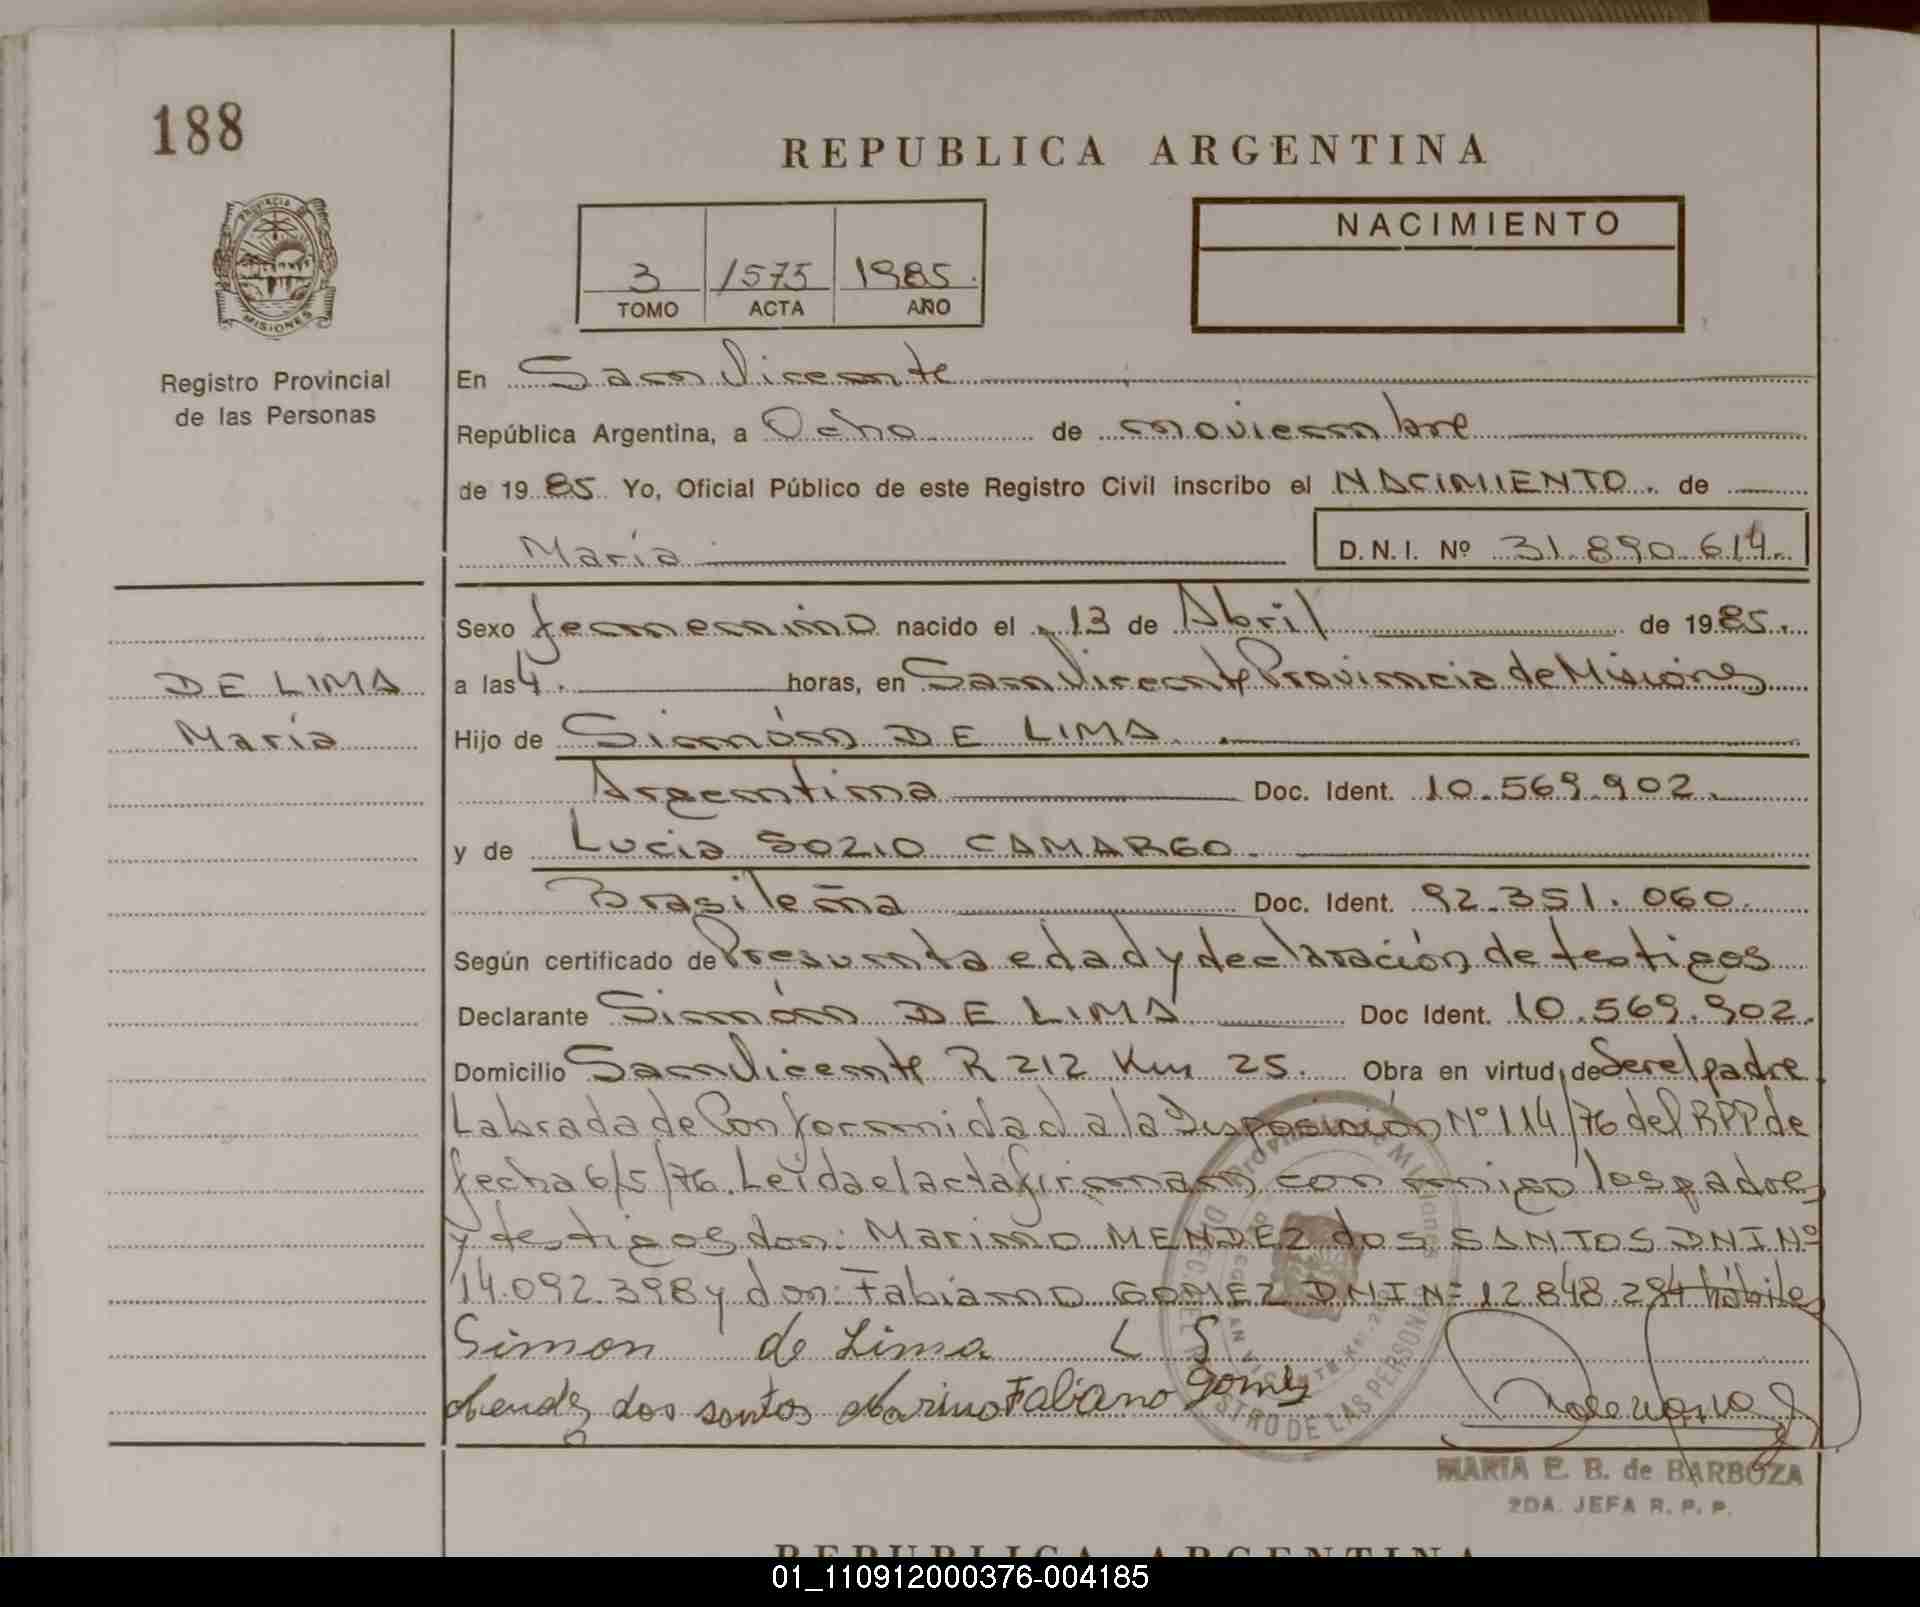 188
REPUBLICA ARGENTINA
PROVINCIA D
MISIONES
NACIMIENTO
3 1575 1985.
TOMO ACTA AÑO
Registro Provincial
de las Personas
En San Vicente
República Argentina, a Ocho de noviembre
de 19 85 Yo, Oficial Público de este Registro Civil inscribo el NACIMIENTO. de
María D.N.I. Nº 31.890.614.
Sexo femenino nacido el 13 de Abril de 19 85.
DE LIMA
a las 4. horas, en San Vicente Provincia de Misiones
María
Hijo de Simón DE LIMA.
Argentina Doc. Ident. 10.569.902.
y de Lucia SOZIO CAMARGO.
Brasileña Doc. Ident. 92.351.060.
Según certificado de Presunta edad y declaración de testigos
Declarante Simón DE LIMA Doc Ident. 10.569.902.
Domicilio San Vicente R 212 Km 25. Obra en virtud, de Ser el padre
Labrada de Conformidad a la Disposición Nº 114/76 del RPP de
fecha 6/5/76. Leída el acta firman conmigo los padres
y testigos don: Marino MENDEZ dos SANTOS DNI Nº
14.092.398 y don: Fabiano GOMEZ DNI Nº 12.848.294 hábiles
Simon de Lima L S
Mendez dos santos Marino Fabiano Gomez
STRO DE LAS PERSONA
MARIA E. B. de BARBOZA
2DA. JEFA R. P. P.
REPUBLICA ARGENTINA
01_110912000376-004185